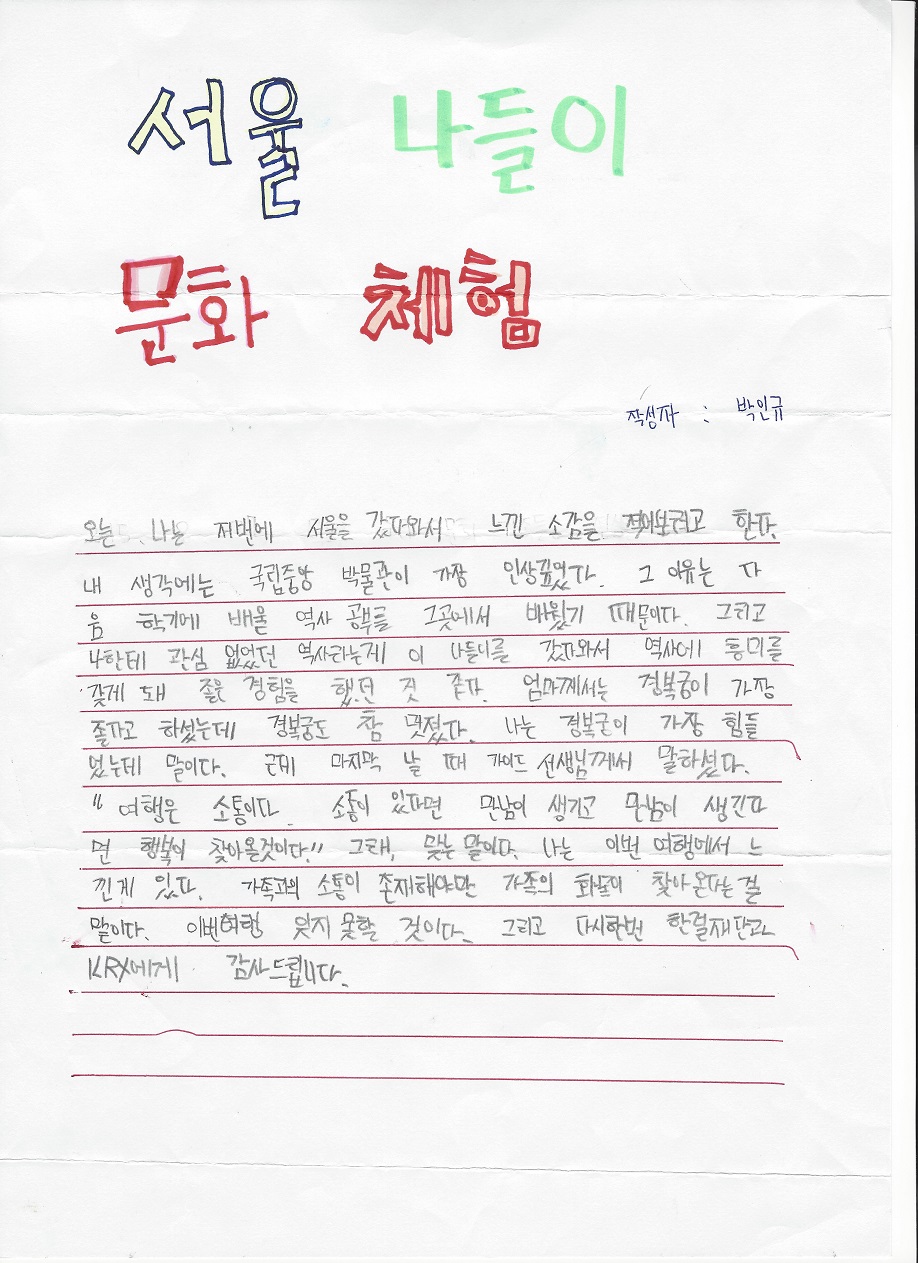 서울 나들이
문화 체험
작성자 : 박인규
오늘 나는 저번에 서울을 갔다와서 느낀 소감을 적어보려고 한다.
내 생각에는 국립중앙 박물관이 가장 인상깊었다. 그 이유는 다
음 학기에 배울 역사 공부를 그곳에서 배웠기 때문이다. 그리고
나한테 관심 없었던 역사라는게 이 나들이를 갔다와서 역사에 흥미를
갖게 돼 좋은 경험을 했던 것 같다. 엄마께서는 경복궁이 가장
좋다고 하셨는데 경복궁도 참 멋졌다. 나는 경복궁이 가장 힘들
었는데 말이다. 근데 마지막 날 때 가이드 선생님께서 말하셨다.
"여행은 소통이다. 소통이 있다면 만남이 생기고 만남이 생긴다
면 행복이 찾아올것이다." 그래, 맞는 말이다. 나는 이번 여행에서 느
낀게 있다. 가족과의 소통이 존재해야만 가족의 화목이 찾아온다는 걸
말이다. 이번여행 잊지 못할 것이다. 그리고 다시한번 한걸재단과
KRX에게 감사드립니다.